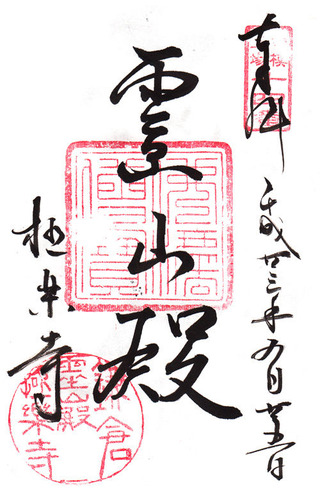 奉拝
平成廿三年九月
霊山殿
極楽寺
鎌倉
霊山殿
極樂寺